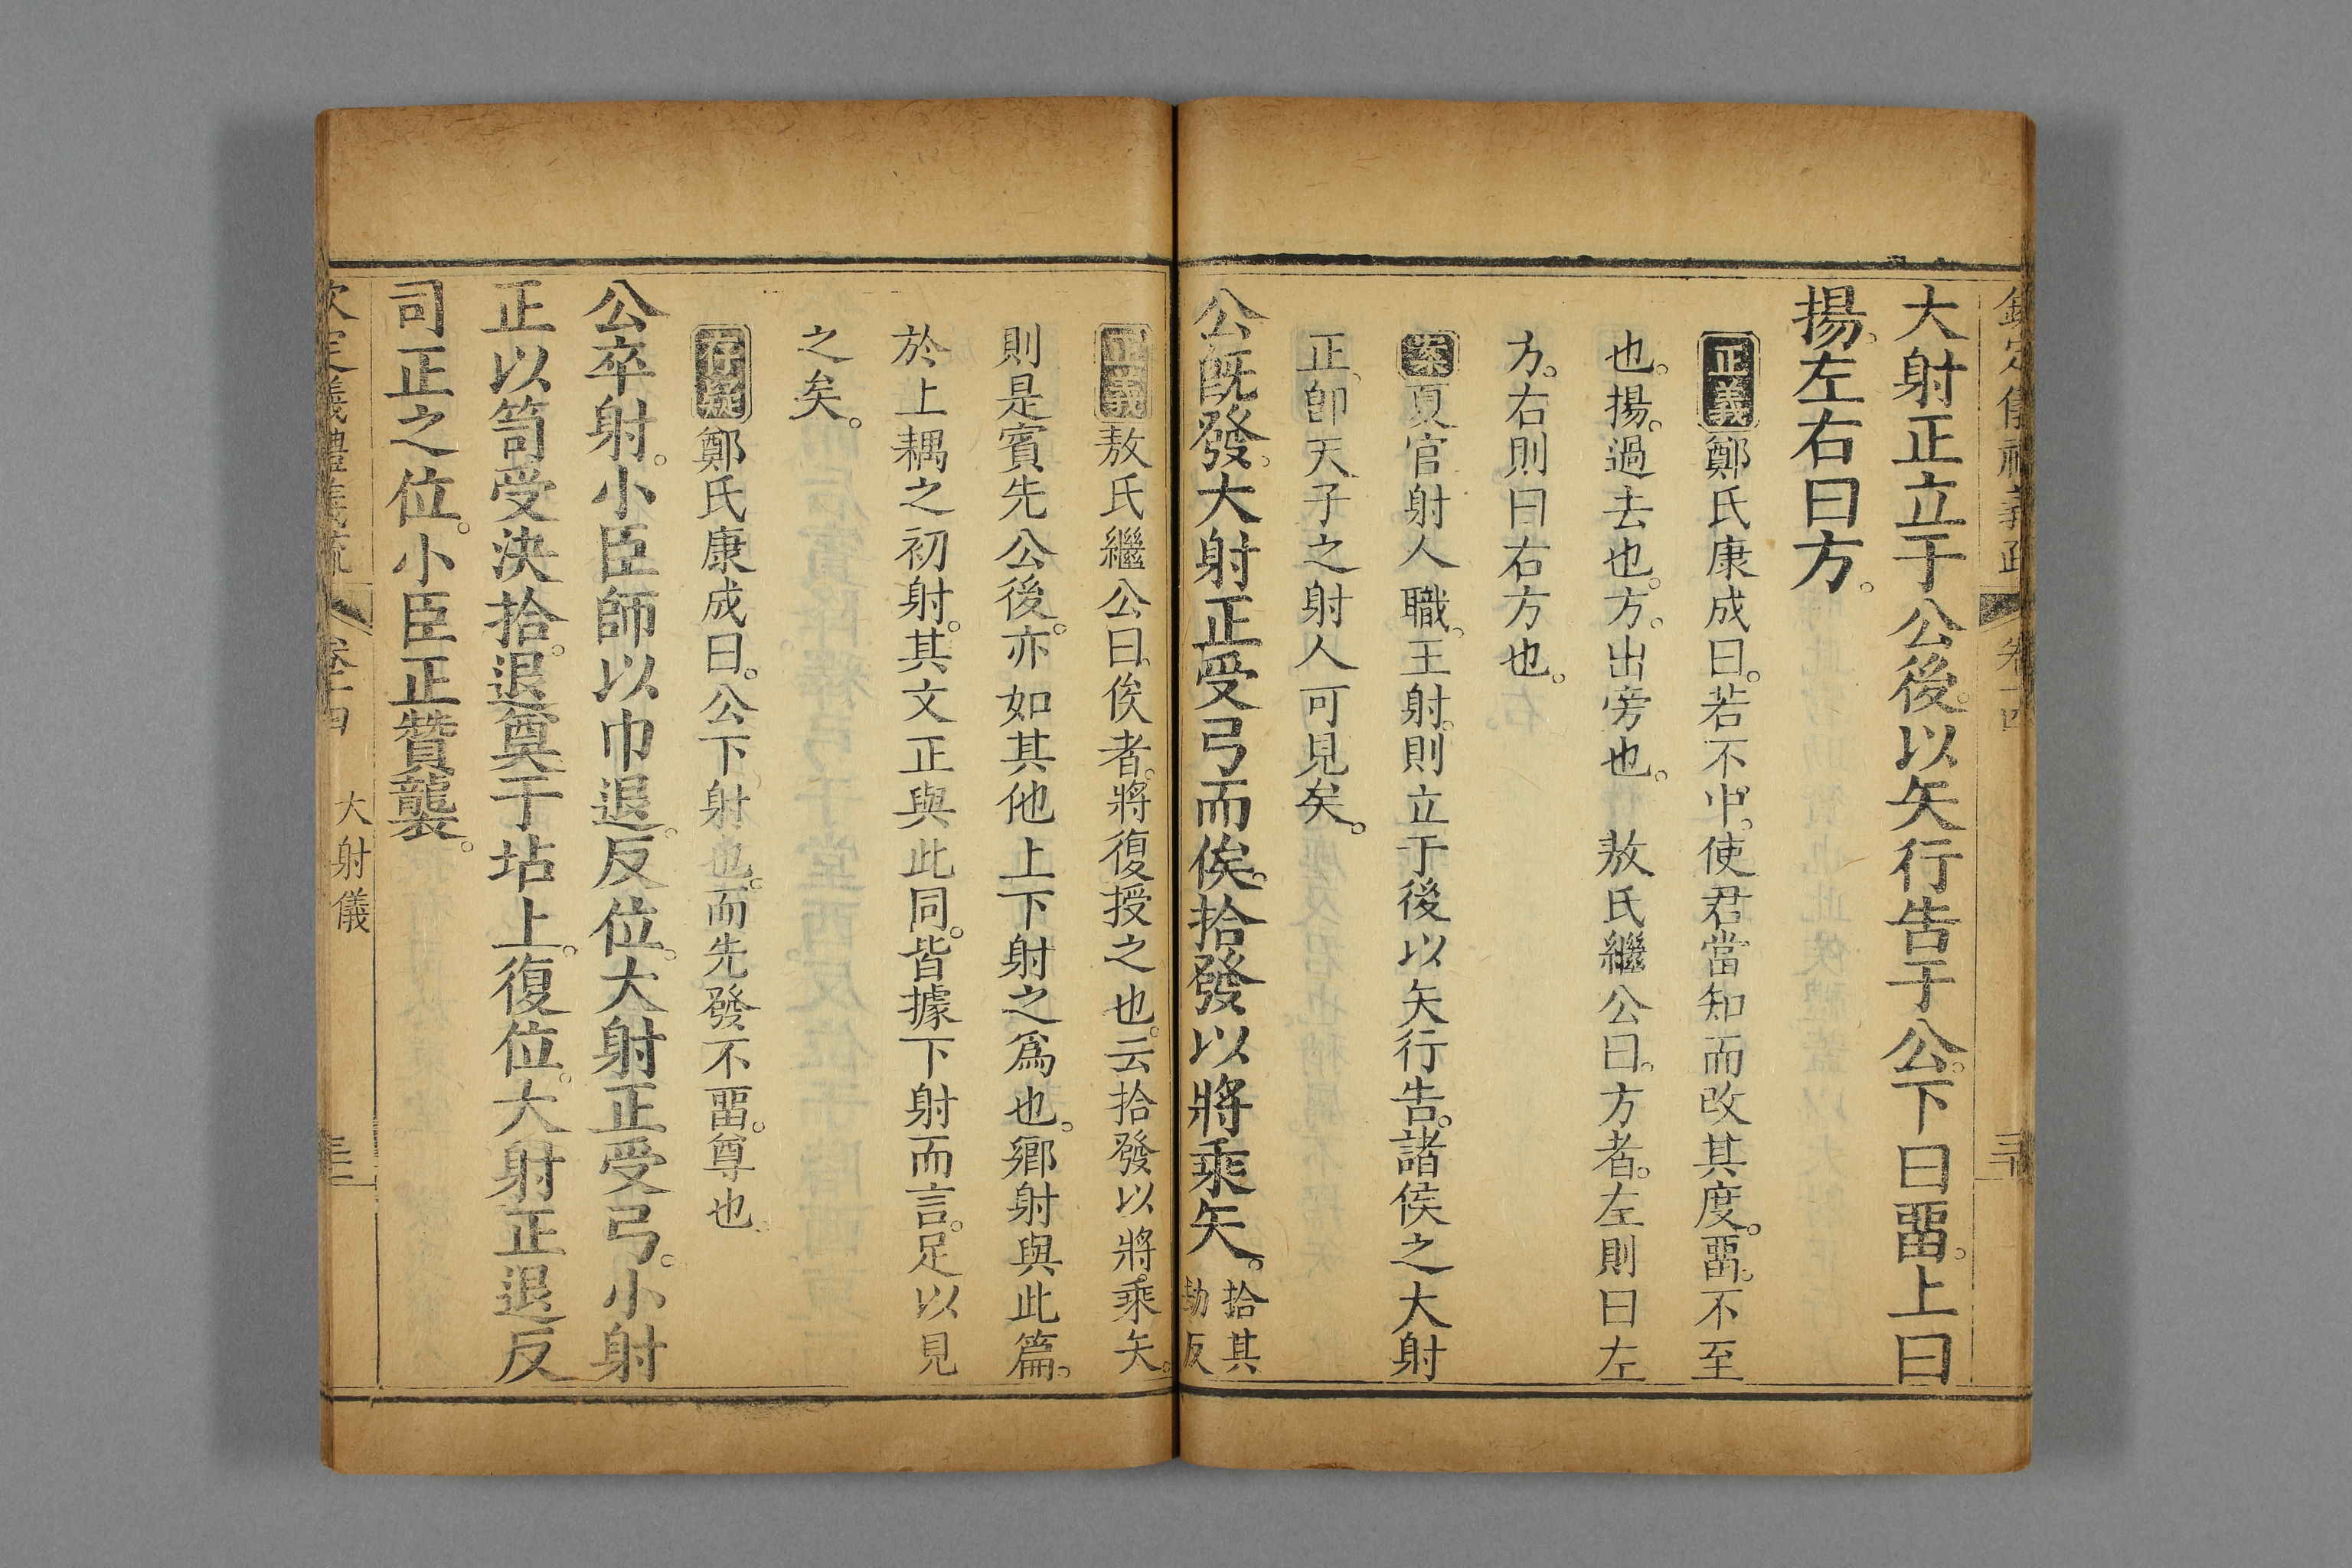 大射正立于公後。以矢行告于公。下曰畱。上曰
揚。左右曰方。
正義鄭氏康成曰。若不中。使君當知而改其度。畱。不至
也。揚。過去也。方。出旁也。 敖氏繼公曰。方者。左則曰左
方。右則曰右方也。
案夏官射人職。王射。則立于後以矢行告。諸侯之大射
正。卽天子之射人可見矣。
公旣發。大射正受弓而俟。拾發以將乘矢。拾其
劫反
正義敖氏繼公曰。俟者。將復授之也。云拾發以將乘矢。
則是賓先公後。亦如其他上下射之爲也。鄉射與此篇。
於上耦之初射。其文正與此同。皆據下射而言。足以見
之矣。
存疑鄭氏康成曰。公下射也。而先發不畱。尊也。
公卒射。小臣師以巾退。反位。大射正受弓。小射
正以笥受決拾。退奠于坫上。復位。大射正退反
司正之位。小臣正贊襲。
義禮義疏 卷十四 大射儀